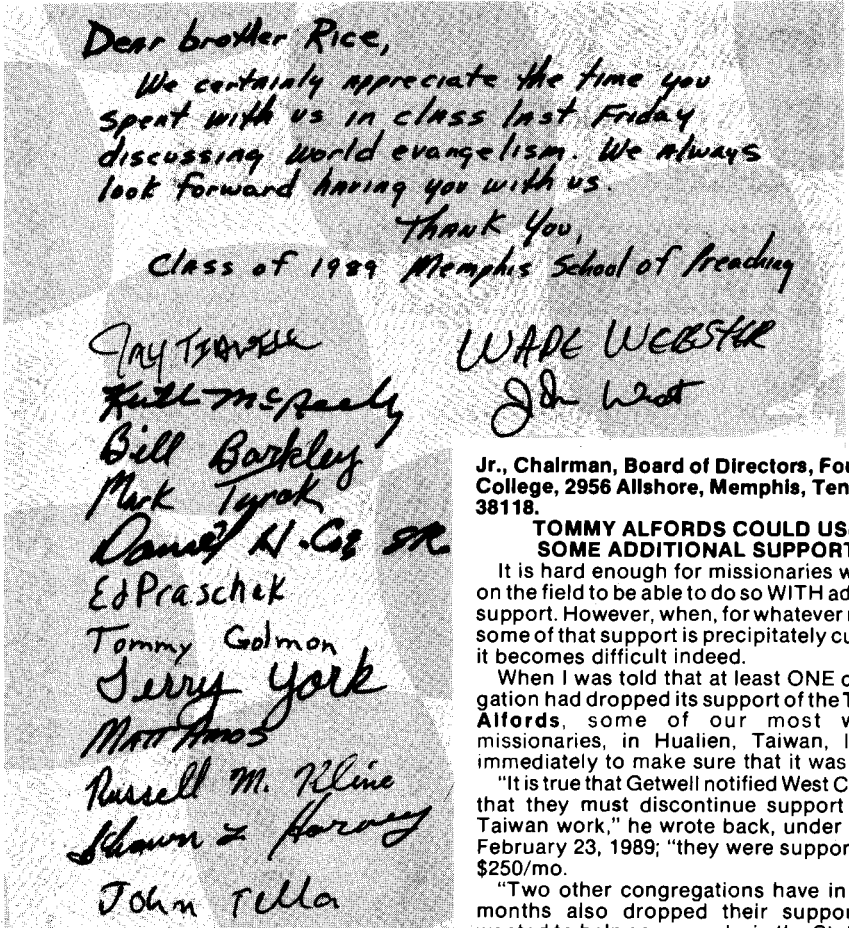 Dear brother Rice,
We certainly appreciate the time you
spent with us in class last Friday
discussing world evangelism. We always
look forward having you with us.
Thank You,
Class of 1989 Memphis School of Preaching
WADE WEBSTER
John West
Bill Barkley
Mark Tyrok
Daniel H. Cox SR.
Ed Praschek
Tommy Golmon
Terry York
Matt Amos
Russell M. Kline
Shawn L Harvey
John Tella
Jr., Chairman, Board of Directors, Fou
College, 2956 Allshore, Memphis, Ten
38118.
TOMMY ALFORDS COULD US
SOME ADDITIONAL SUPPORT
It is hard enough for missionaries w
on the field to be able to do so WITH ad
support. However, when, for whatever
some of that support is precipitately cu
it becomes difficult indeed.
When I was told that at least ONE c
gation had dropped its support of the T
Alfords, some of our most w
missionaries, in Hualien, Taiwan, I
immediately to make sure that it was
"It is true that Getwell notified West C
that they must discontinue support
Taiwan work," he wrote back, under
February 23, 1989; "they were suppor
$250/mo.
"Two other congregations have in
months also dropped their suppor